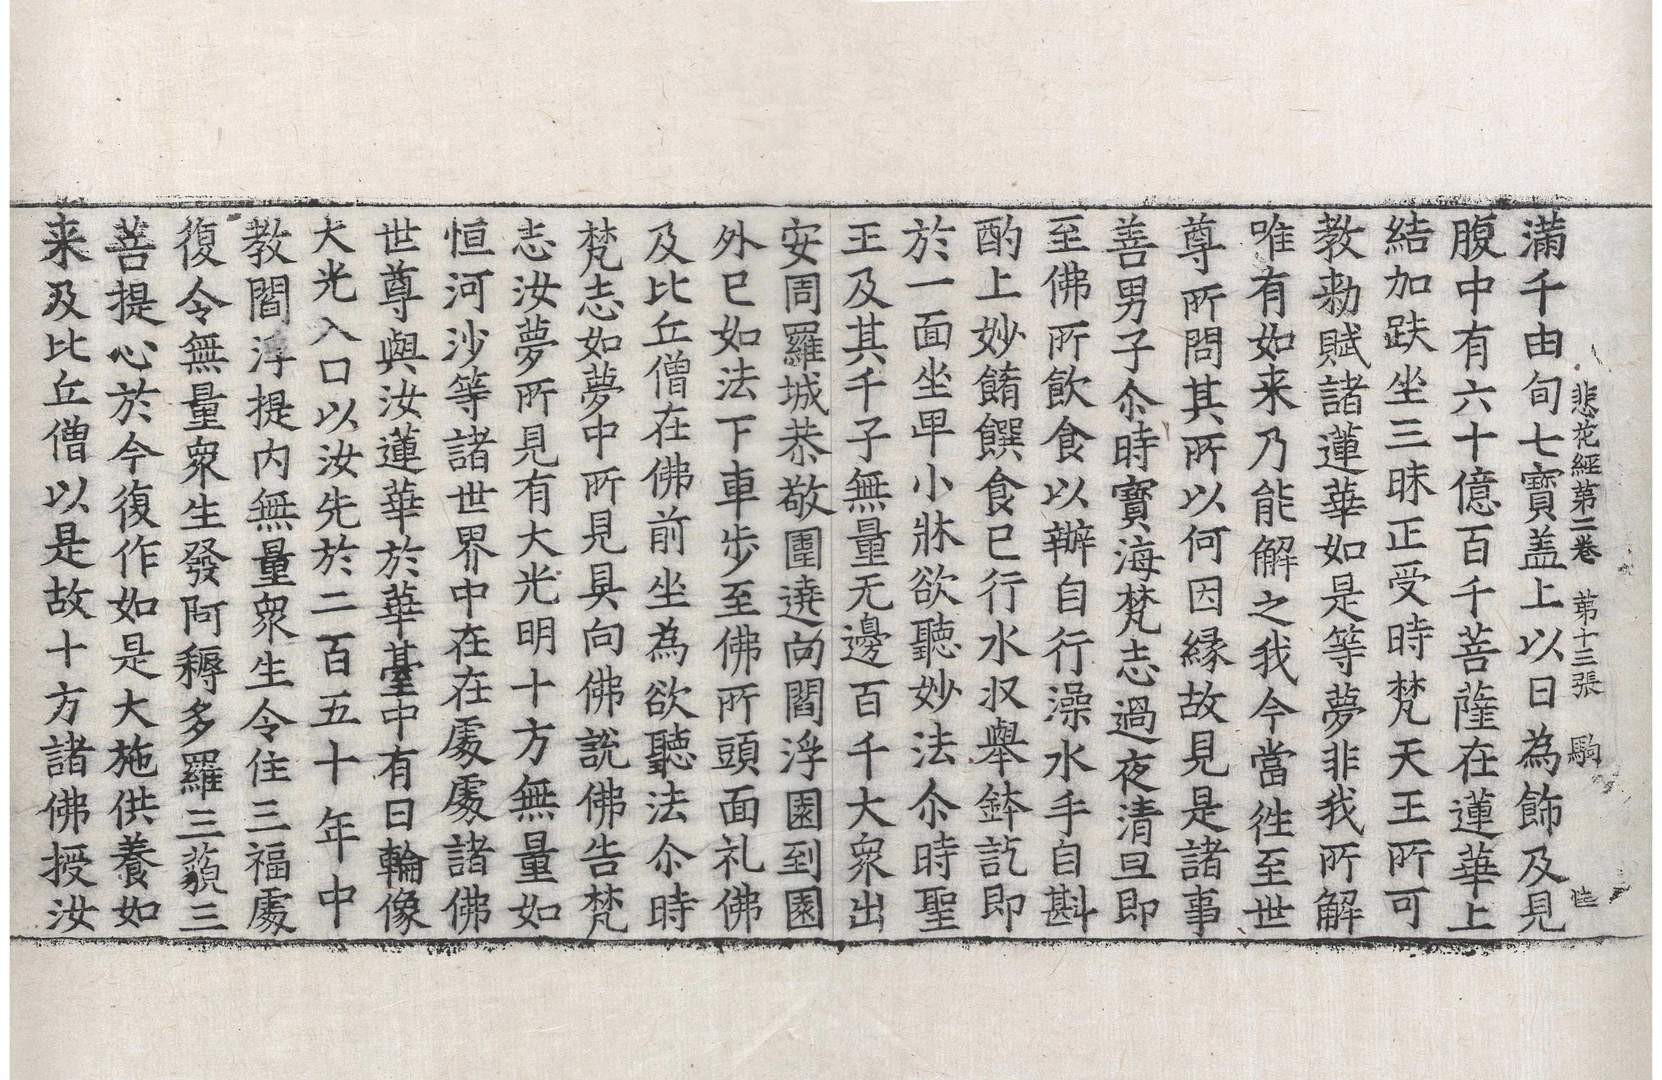 悲花經第二卷 第十三張 駒
隹
滿千由旬七寶盖上以日為飾及見
腹中有六十億百千菩薩在蓮華上
結加趺坐三昧正受時梵天王所可
教勑賦諸蓮華如是等夢非我所解
唯有如来乃能解之我今當徃至世
尊所問其所以何因縁故見是諸事
善男子尒時寶海梵志過夜清旦即
至佛所飲食以辦自行澡水手自斟
酌上妙餚饌食已行水収舉鉢訖即
於一面坐卑小牀欲聽妙法尒時聖
王及其千子無量无邊百千大衆出
安周羅城恭敬圍遶向閻浮園到園
外已如法下車步至佛所頭面礼佛
及比丘僧在佛前坐為欲聽法尒時
梵志如夢中所見具向佛說佛告梵
志汝夢所見有大光明十方無量如
恒河沙等諸世界中在在處處諸佛
世尊與汝蓮華於華臺中有日輪像
大光入口以汝先於二百五十年中
教閻浮提内無量衆生令住三福處
復令無量衆生發阿耨多羅三藐三
菩提心於今復作如是大施供養如
来及比丘僧以是故十方諸佛授汝